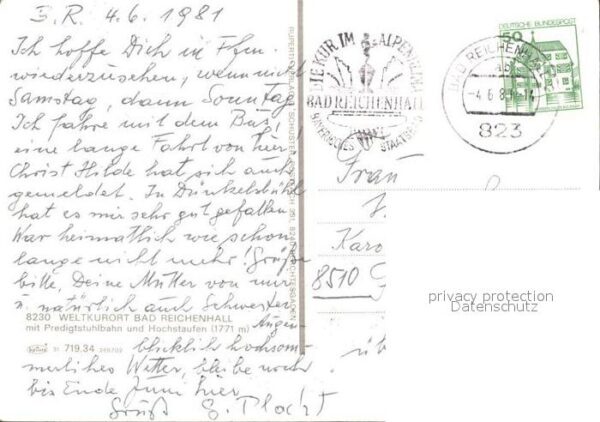 B. R. 4.6.1981
Ich hoffe Dich in
wiederzusehen, wenn nicht
Samstag, dann Sonntag
Ich fahre mit dem Bus!
eine lange Fahrt von hier!
Christ Hilde hat sich auch
gemeldet. In Dünkelsbühl
hat es mir sehr gut gefallen
War heimatlich wie schon
lange nicht mehr! Grüße
bitte, Deine Mutter von mir
u. natürlich auch Schwester
8230 WELTKURORT BAD REICHENHALL
mit Predigtstuhlbahn und Hochstaufen (1771 m)
Augen-
31 719.34
blicklich hochsom-
merliches Wetter, bleibe noch
bis Ende Juni hier
Gruß
DIE KUR IM ALPENKLIMA
BAD REICHENHALL
BAYERISCHES STAATSBAD
DEUTSCHE BUNDESPOST
50
BAD REICHENHALL
823
Frau
Karo
8510 G
privacy protection
Datenschutz